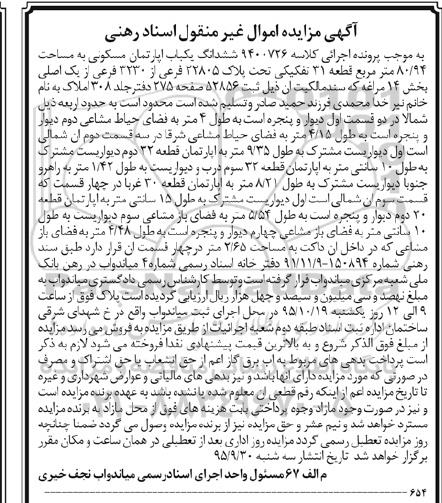 آگهی مزایده اموال غیر منقول اسناد رهنی
به موجب پرونده اجرائی کلاسه ۹۴۰۰۷۲۶ ششدانگ یکباب اپارتمان مسکونی به مساحت
۸۰/۹۴ متر مربع قطعه ۳۱ تفکیکی تحت پلاک ۲۲۸۰۵ فرعی از ۳۲۳۰ فرعی از یک اصلی
بخش ۱۴ مراغه که سندمالکیت ان ذیل ثبت ۵۲۸۵۶ صفحه ۲۷۵ دفترجلد ۳۰۸ املاک به نام
خانم نیر خدا محمدی فرزند حمید صادر وتسلیم شده است محدود است به حدود اربعه ذیل
شمالا در دو قسمت اول دیوار و پنجره است به طول ۴ متر به فضای حیاط مشاعی دوم دیوار
و پنجره است به طول ۴/۱۵ متر به فضای حیاط مشاعی شرقا در سه قسمت دوم ان شمالی
است اول دیواریست مشترک به طول ۹/۳۵ متر به اپارتمان قطعه ۳۲ دوم دیواریست مشترک
به طول ۱۰ سانتی متر به اپارتمان قطعه ۳۲ سوم درب و دیواریست به طول ۱/۴۲ متر به راهرو
جنوبا دیواریست مشترک به طول ۸/۲۱ متر به اپارتمان قطعه ۳۰ غربا در چهار قسمت که
قسمت سوم ان شمالی است اول دیواریست مشترک به طول ۱۵ سانتی متر به اپارتمان قطعه
۳۰ دوم دیوار و پنجره است به طول ۵/۵۴ متر به فضای باز مشاعی سوم دیواریست به طول
۱۰ سانتی متر به فضای باز مشاعی چهارم دیوار و پنجره است به طول ۴/۴۸ متر به فضای باز
مشاعی که در داخل ان داکت به مساحت ۲/۶۵ متر در چهار قسمت ان قرار دارد طبق سند
رهنی شماره ۱۵۰۸۹۴-۹۱/۱۱/۹ دفتر خانه اسناد رسمی شماره۴ میاندواب در رهن بانک
ملی شعبه مرکزی میاندواب قرار گرفته است وتوسط کارشناس رسمی دادگستری میاندواب به
مبلغ نهصد و سی میلیون و سیصد و چهل هزار ریال ارزیابی گردیده است پلاک فوق از ساعت
۹ الی ۱۲ روز یکشنبه ۹۵/۱۰/۱۹ در محل اجرای ثبت میاندواب واقع در خ شهدای شرقی
ساختمان اداره ثبت اسناد طبقه دوم شعبه اجرائیات از طریق مزایده به فروش می رسد مزایده
از مبلغ فوق الذکر شروع و به بالاترین قیمت پیشنهادی نقدا فروخته می شود لازم به ذکر
است پرداخت بدهی های مربوط به اب برق گاز اعم از حق انشعاب یا حق اشتراک و مصرف
در صورتی که مورد مزایده دارای انها باشد و نیز بدهی های مالیاتی و عوارض شهرداری و غیره
تا تاریخ مزایده اعم از اینکه رقم قطعی ان معلوم شده یا نشده باشد به عهده برنده مزایده است
و نیز در صورت وجود مازاد وجوه پرداختی بابت هزینه های فوق از محل مازاد به برنده مزایده
مسترد خواهد شد و نیم عشر و حق مزایده نیز از برنده مزایده وصول می گردد ضمنا چنانچه
روز مزایده تعطیل رسمی گردد مزایده روز اداری بعد از تعطیلی در همان ساعت و مکان مقرر
برگزار خواهد شد تاریخ انتشار سه شنبه ۹۵/۹/۳۰
م الف ۶۷ مسئول واحد اجرای اسناد رسمی میاندواب نجف خیری
۶۵۴